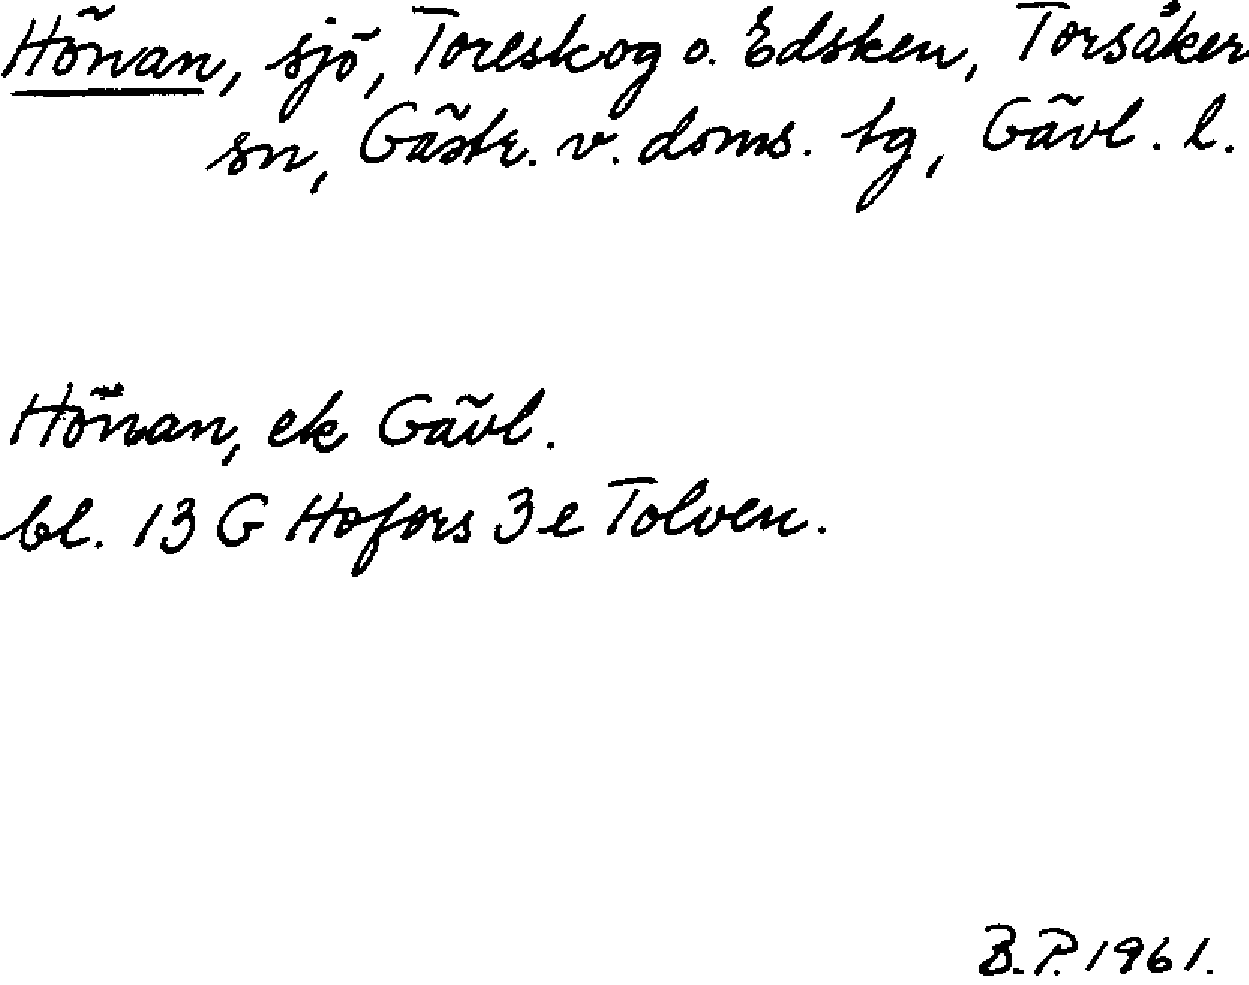 Hönan, sjö, Toreskog o. Edsken, Torsåker
sn, Gästr. v. doms. tg, Gävl. l.
Hönan, ek Gävl.
bl. 13 G Hofors 3 e Tolven.
B.P. 1961.